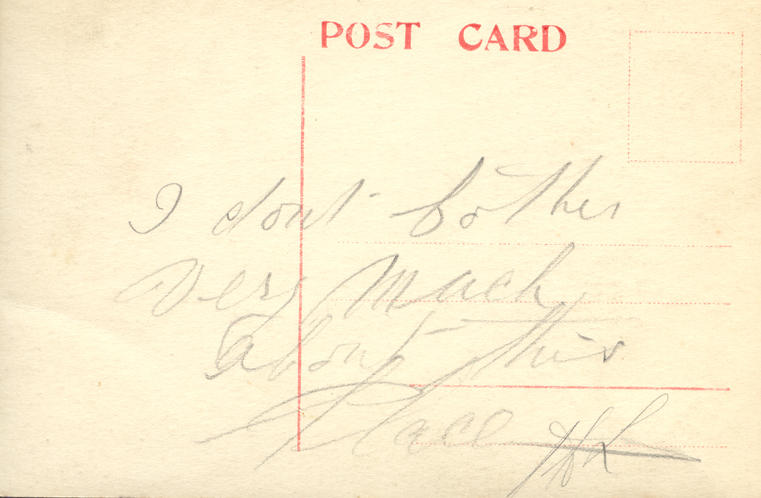 POST CARD
I dont bother
very much
about this
Place